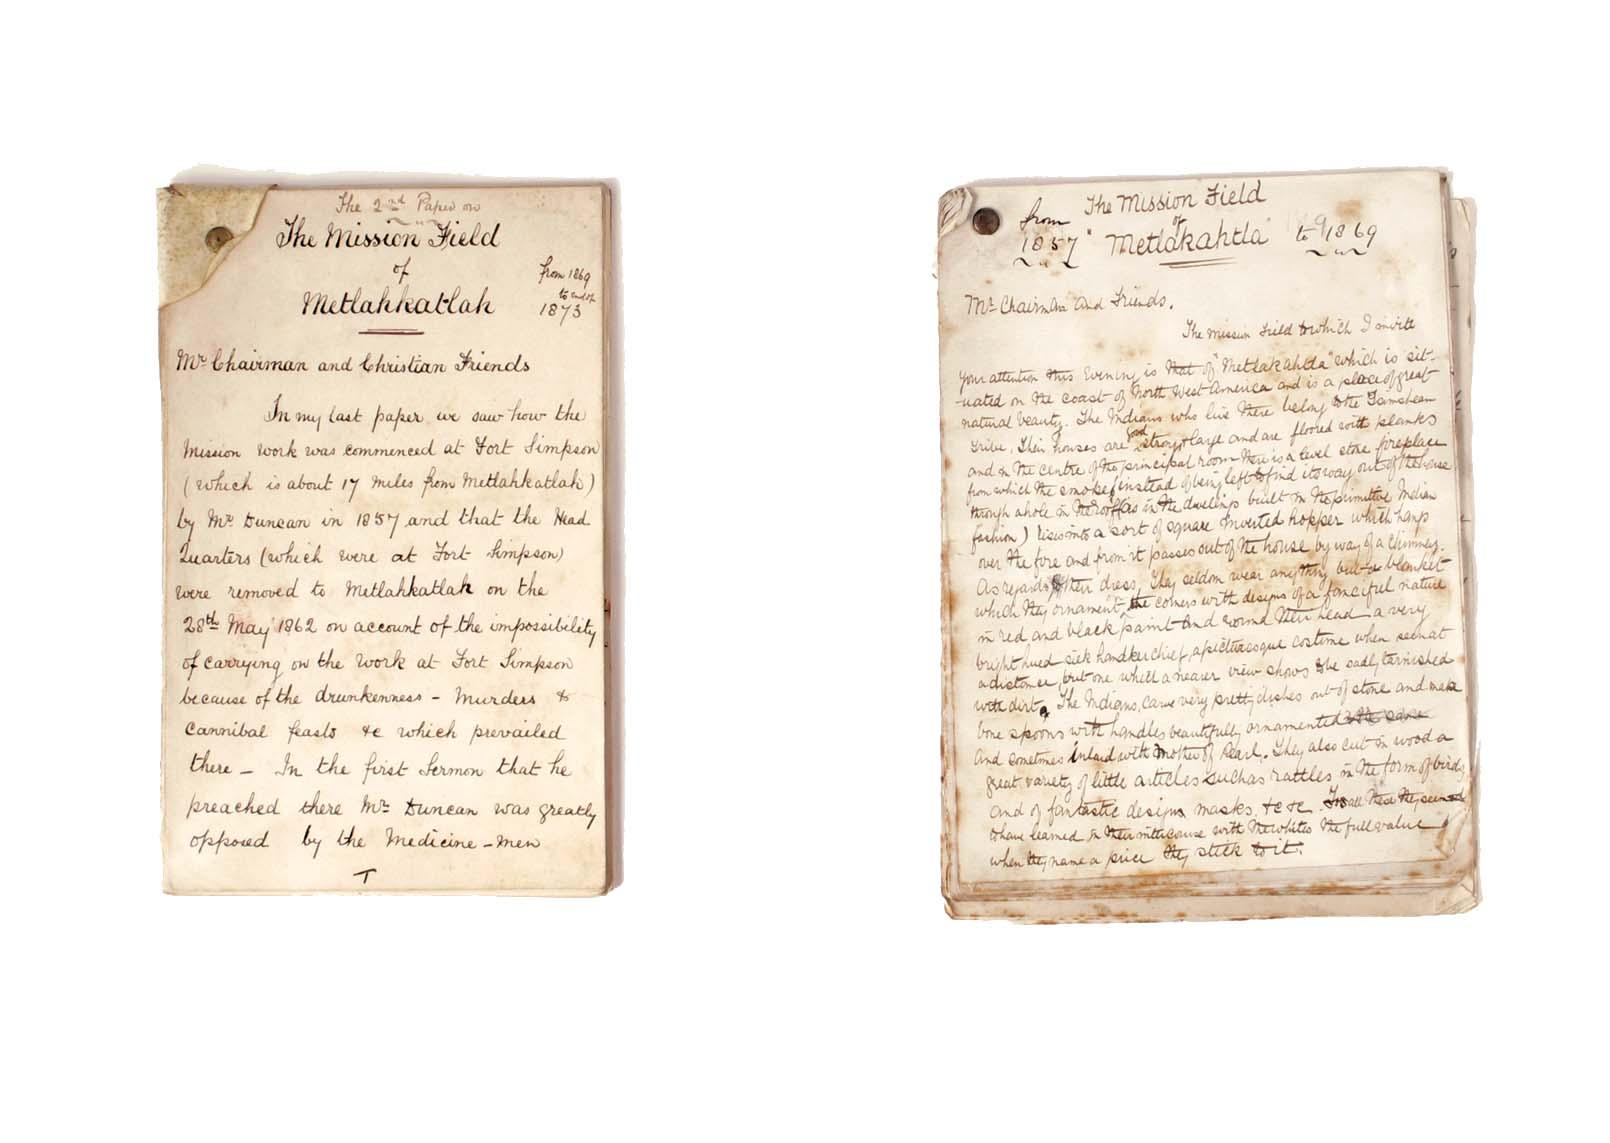 The 2nd Paper on
The Mission Field
of
Metlahkatlah
from 1869
to end of
1873
Mr. Chairman and Christian Friends
In my last paper we saw how the
Mission work was commenced at Fort Simpson
(which is about 17 miles from Metlahkatlah)
by Mr. Duncan in 1857 and that the Head
Quarters (which were at Fort Simpson)
were removed to Metlahkatlah on the
28th May 1862 on account of the impossibility
of carrying on the work at Fort Simpson
because of the drunkenness - Murders &
Cannibal feasts &c which prevailed
there - In the first Sermon that he
preached there Mr. Duncan was greatly
opposed by the Medicine-men
The Mission Field
of
from 1857 "Metlakahtla" to 1869
Mr. Chairman and Friends.
The Mission Field to which I invite
your attention this evening is that of "Metlakahtla" which is sit-
-uated on the coast of North West America and is a place of great
natural beauty. The Indians who live there belong to the Tsimshean
tribe. Their houses are good strong & large and are floored with planks
and in the centre of the principal room there is a level stone fireplace
from which the smoke (instead of being left to find its way out of the house
through a hole in the roof as in the dwellings built in the primitive Indian
fashion) rises into a sort of square inverted hopper which hangs
over the fire and from it passes out of the house by way of a chimney.
As regards their dress, they seldom wear anything but a blanket
which they ornament the corners with designs of a fanciful nature
in red and black paint and round their head a very
bright hued silk handkerchief, a picturesque costume when seen at
a distance, but one which a nearer view shows to be sadly tarnished
with dirt. The Indians carve very pretty dishes out of stone and make
bone spoons with handles beautifully ornamented
and sometimes inlaid with Mother of Pearl. They also cut in wood a
great variety of little articles such as rattles in the form of birds
and of fantastic design, masks &c &c. For all these they seemed
to have learned in their intercourse with the whites the full value
when they name a price they stick to it.